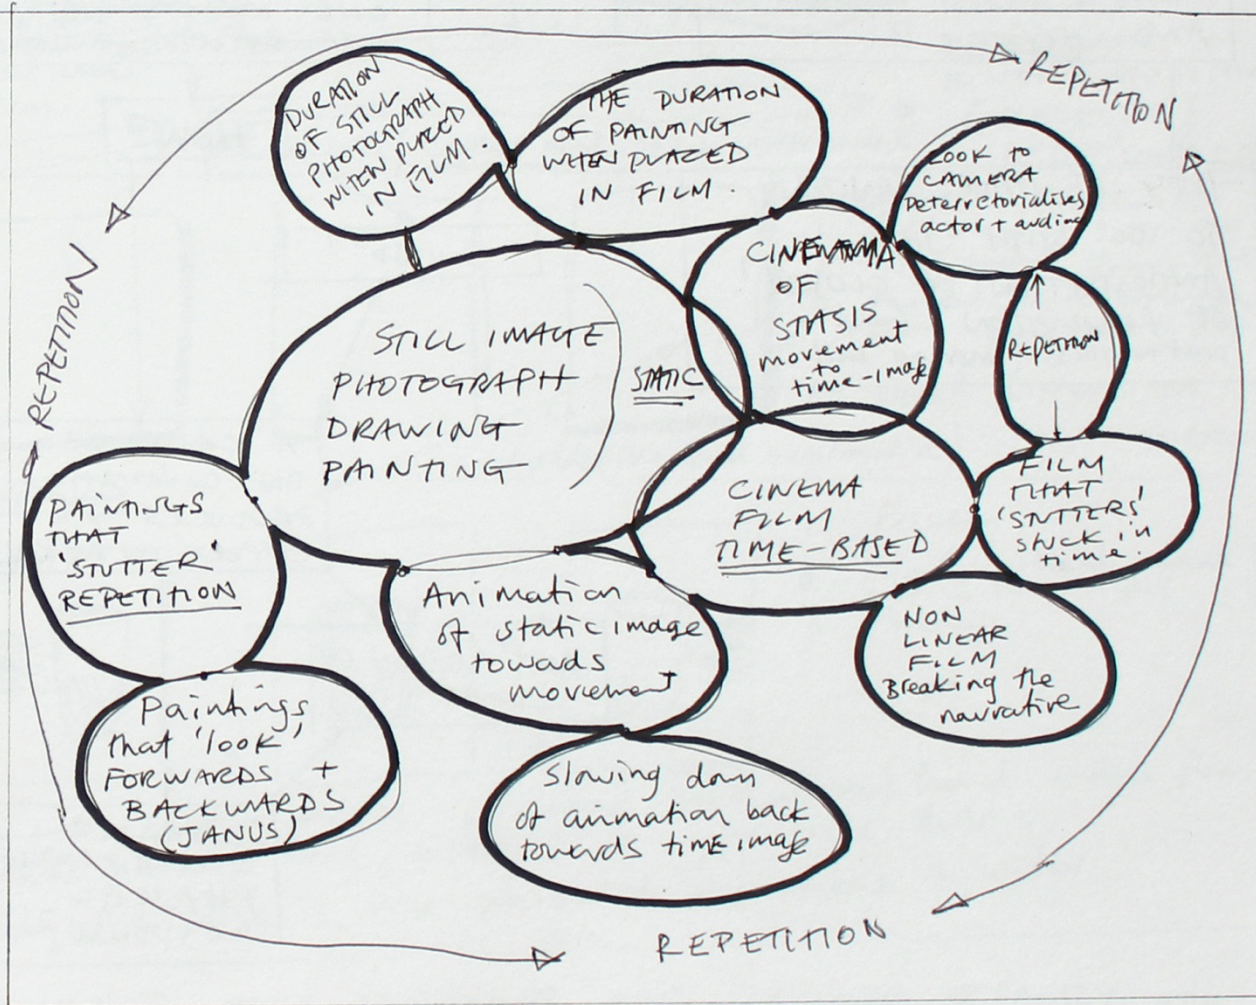 REPETITION
DURATION
OF STILL
PHOTOGRAPH
WHEN PLACED
IN FILM.
THE DURATION
OF PAINTING
WHEN PLACED
IN FILM.
LOOK TO
CAMERA
Deterretorialises
actor + audience
CINEMA
OF
STASIS
movement
to
time-image
REPETITION
REPETITION
STILL IMAGE
PHOTOGRAPH
DRAWING
PAINTING
STATIC
CINEMA
FILM
TIME-BASED
FILM
THAT
'STUTTERS'
stuck in
time.
PAINTINGS
THAT
'STUTTER'
REPETITION
Animation
of static image
towards
movement
NON
LINEAR
FILM
Breaking the
narrative
Paintings
that 'look'
FORWARDS +
BACKWARDS
(JANUS)
Slowing down
of animation back
towards time image
REPETITION